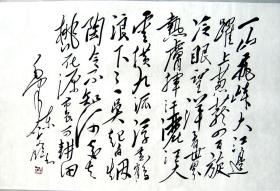 一山飛峙大江邊
躍上葱蘢四百旋
冷眼望洋看世界
熱膚揮汗灑江天
雲横九派浮黄鶴
浪下三吳起白烟
陶令不知何處去
桃花源裏可耕田